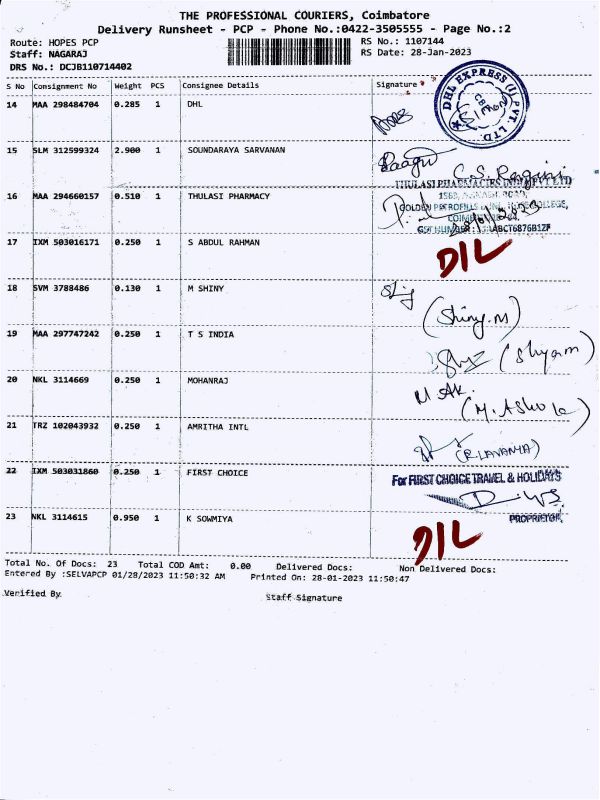 THE PROFESSIONAL COURIERS, Coimbatore
Delivery Runsheet - PCP - Phone No.:0422-3505555 - Page No.:2
Route: HOPES PCP
RS No.: 1107144
Staff: NAGARAJ
RS Date: 28-Jan-2023
DRS No.: DCJB110714402
S No Consignment No Weight PCS Consignee Details Signature
14 MAA 298484704 0.285 1 DHL
DHL EXPRESS (I) PVT. LTD.
15 SLM 312599324 2.900 1 SOUNDARAYA SARVANAN
C.S. Ragini
16 MAA 294660157 0.510 1 THULASI PHARMACY
17 IXM 503016171 0.250 1 S ABDUL RAHMAN
D/L
18 SVM 3788486 0.130 1 M SHINY
(Shiny.M)
19 MAA 297747242 0.250 1 T S INDIA
(Shyam)
20 NKL 3114669 0.250 1 MOHANRAJ
(M. Ashok)
21 TRZ 102043932 0.250 1 AMRITHA INTL
(R.LAVANYA)
22 IXM 503031860 0.250 1 FIRST CHOICE
For FIRST CHOICE TRAVEL & HOLIDAYS
PROPRIETOR
23 NKL 3114615 0.950 1 K SOWMIYA
D/L
Total No. Of Docs: 23 Total COD Amt: 0.00 Delivered Docs: Non Delivered Docs:
Entered By :SELVAPCP 01/28/2023 11:50:32 AM Printed On: 28-01-2023 11:50:47
Verified By
Staff Signature